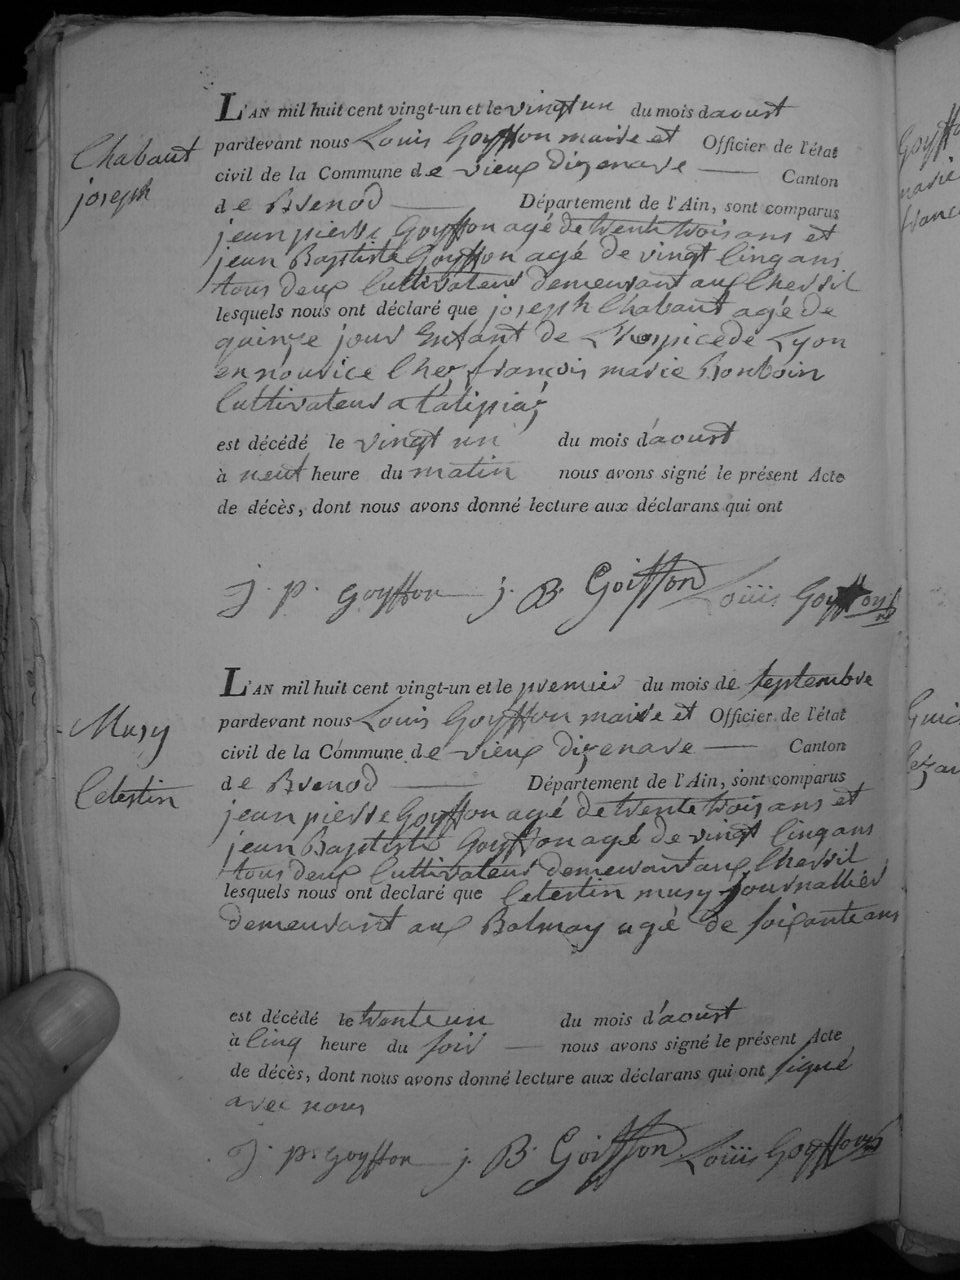 Chabaut
joseph
L'AN mil huit cent vingt-un et le vingt un du mois d'aoust
pardevant nous Louis Goyffon maire et Officier de l'état
civil de la Commune de vieux dizenave Canton
de Brenod Département de l'Ain, sont comparus
jean pierre Goyffon agé de trente trois ans et
jean Baptiste Goyffon agé de vingt cinq ans
tous deux Cultivateurs demeurant aux
lesquels nous ont déclaré que joseph Chabaut agé de
quinze jour Enfant de L'hospice de Lyon
en nourice chez françois marie
Cultivateur a
est décédé le vingt un du mois d'aoust
à neuf heure du matin nous avons signé le présent Acte
de décès, dont nous avons donné lecture aux déclarans qui ont
J. P. goyffon j. B. Goiffon Louis Goyffon
Musy
Celestin
L'AN mil huit cent vingt-un et le premier du mois de septembre
pardevant nous Louis Goyffon maire et Officier de l'état
civil de la Commune de vieux dizenave Canton
de Brenod Département de l'Ain, sont comparus
jean pierre Goyffon agé de trente trois ans et
jean Baptiste Goyffon agé de vingt cinq ans
tous deux Cultivateurs demeurant aux
lesquels nous ont declaré que Celestin musy journallier
demeurant aux Balmay agé de soixante ans
est décédé le trente un du mois d'aoust
à cinq heure du soir nous avons signé le présent Acte
de décès, dont nous avons donné lecture aux déclarans qui ont signé
avec nous
J. P. goyffon j. B. Goiffon Louis Goyffon